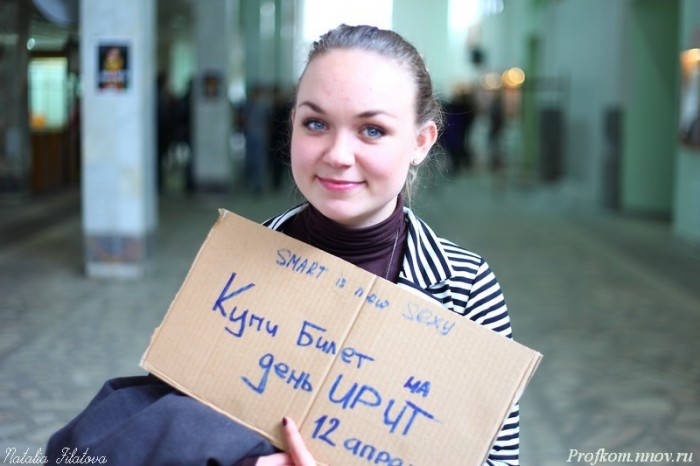 SMART is new sexy
Купи Билет на
день ИРИТ
12 апре
Natalia Filatova
Profkom.nnov.ru